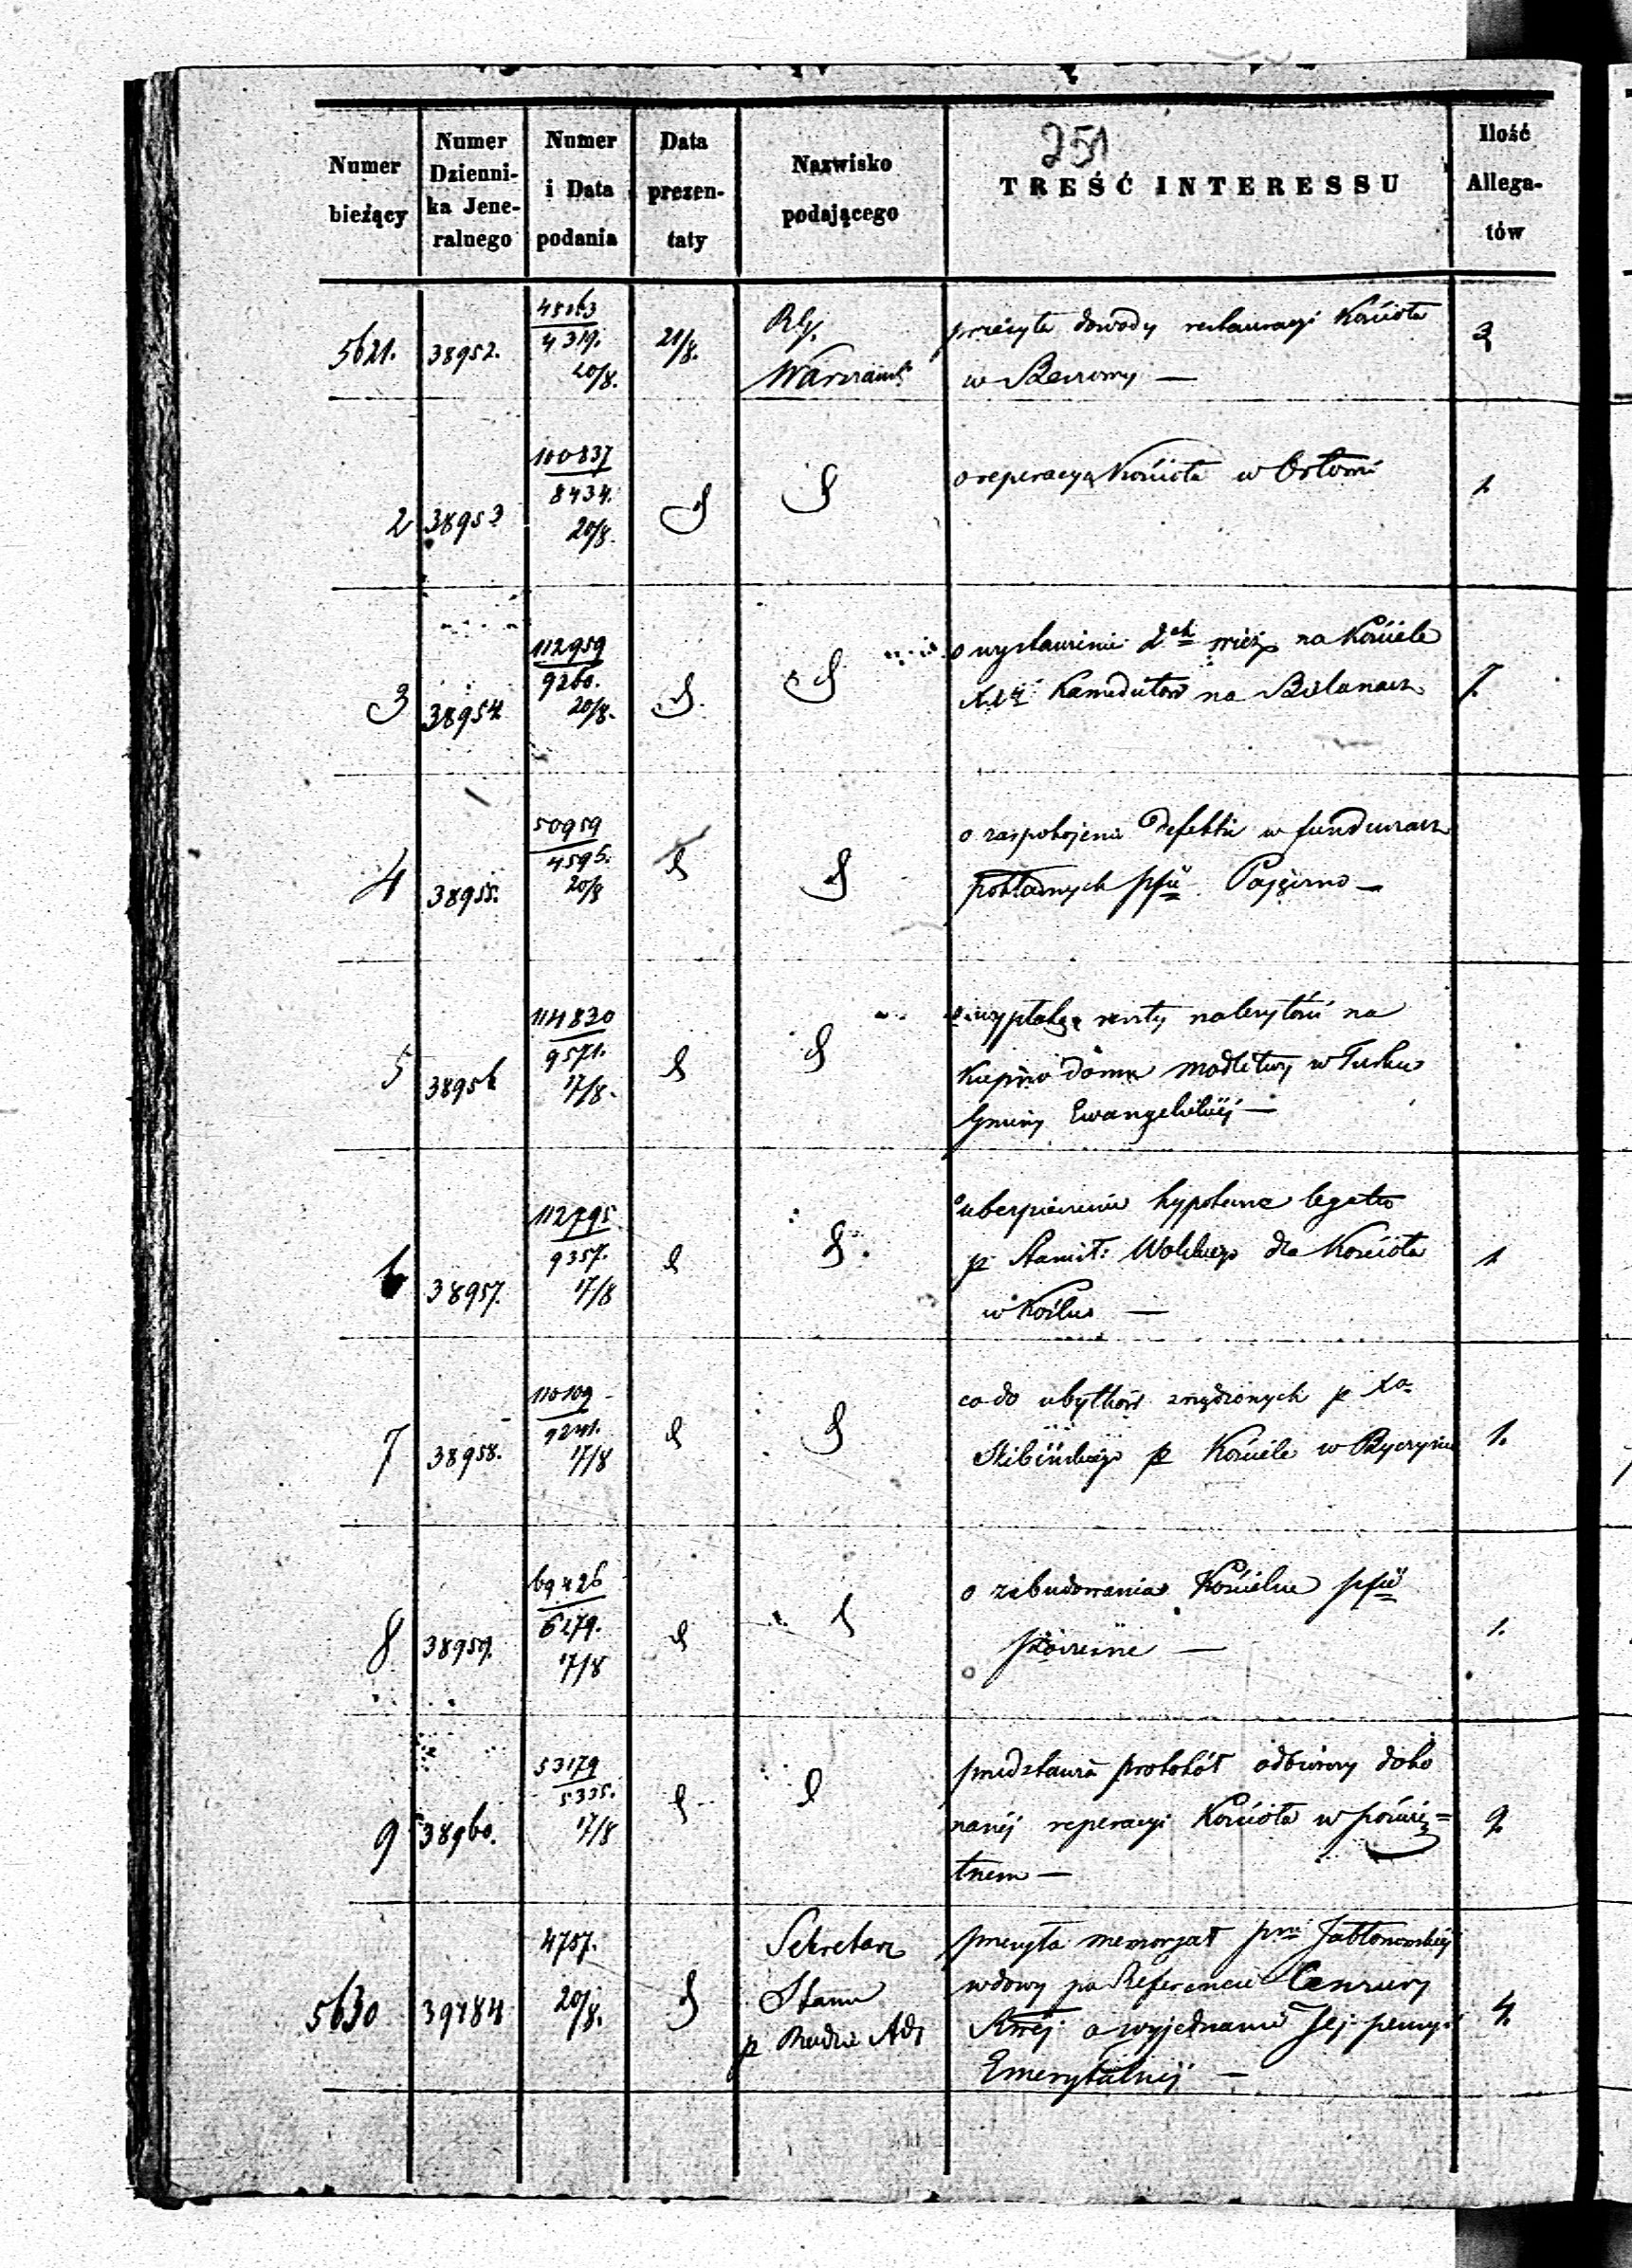 251
Numer bieżący
Numer Dzienni- ka Jene- ralnego
Numer i Data podania
Data prezen- taty
Nazwisko podającego
TREŚĆ INTERESSU
Ilość Allega- tów
5621. 38952. 4319. 20/8. 21/8. przesyła dowody restauracyi Kościoła
w
2 38953 100837 8434. 20/8. o reperacyą Kościoła w 1
3 38954 112959 9260. 20/8. o wystawienie 2ch wież na Kościele
Kamedułów na Bielanach
4 38955. 50959 4595. 20/8 o zaspokojenie defektu w funduszach
pokładnych
5 38956 114830 9571. 17/8. o wypłatę reszty należytości na
kupno domu modlitwy w Turku
Gminy Ewangelickiej —
6 38957. 112795 9357. 17/8 o ubezpieczenie hypoteczne legatu
p Stanisł: Wolskiego dla Kościoła 1
w —
7 38958. 110109 9241. 17/8 co do ubytków zrządzonych p
p Kościele w 1.
8 38959. 69426 6279. 17/8 o zabudowania Kościelne 1.
9 38960. 53179 5335. 17/8 przedstawia protokół odbiorczy doko
nanéj reperacyi Kościoła w Poświę= 2
tnem —
5630 39484 4757. 20/8. Sekretarz przesyła memoryał pni Jabłonowskiéj
Stanu wdowy po Referencie Cenzury 4
p Radzie Ads o wyjednanie Jej pensyi
Emerytalnéj —